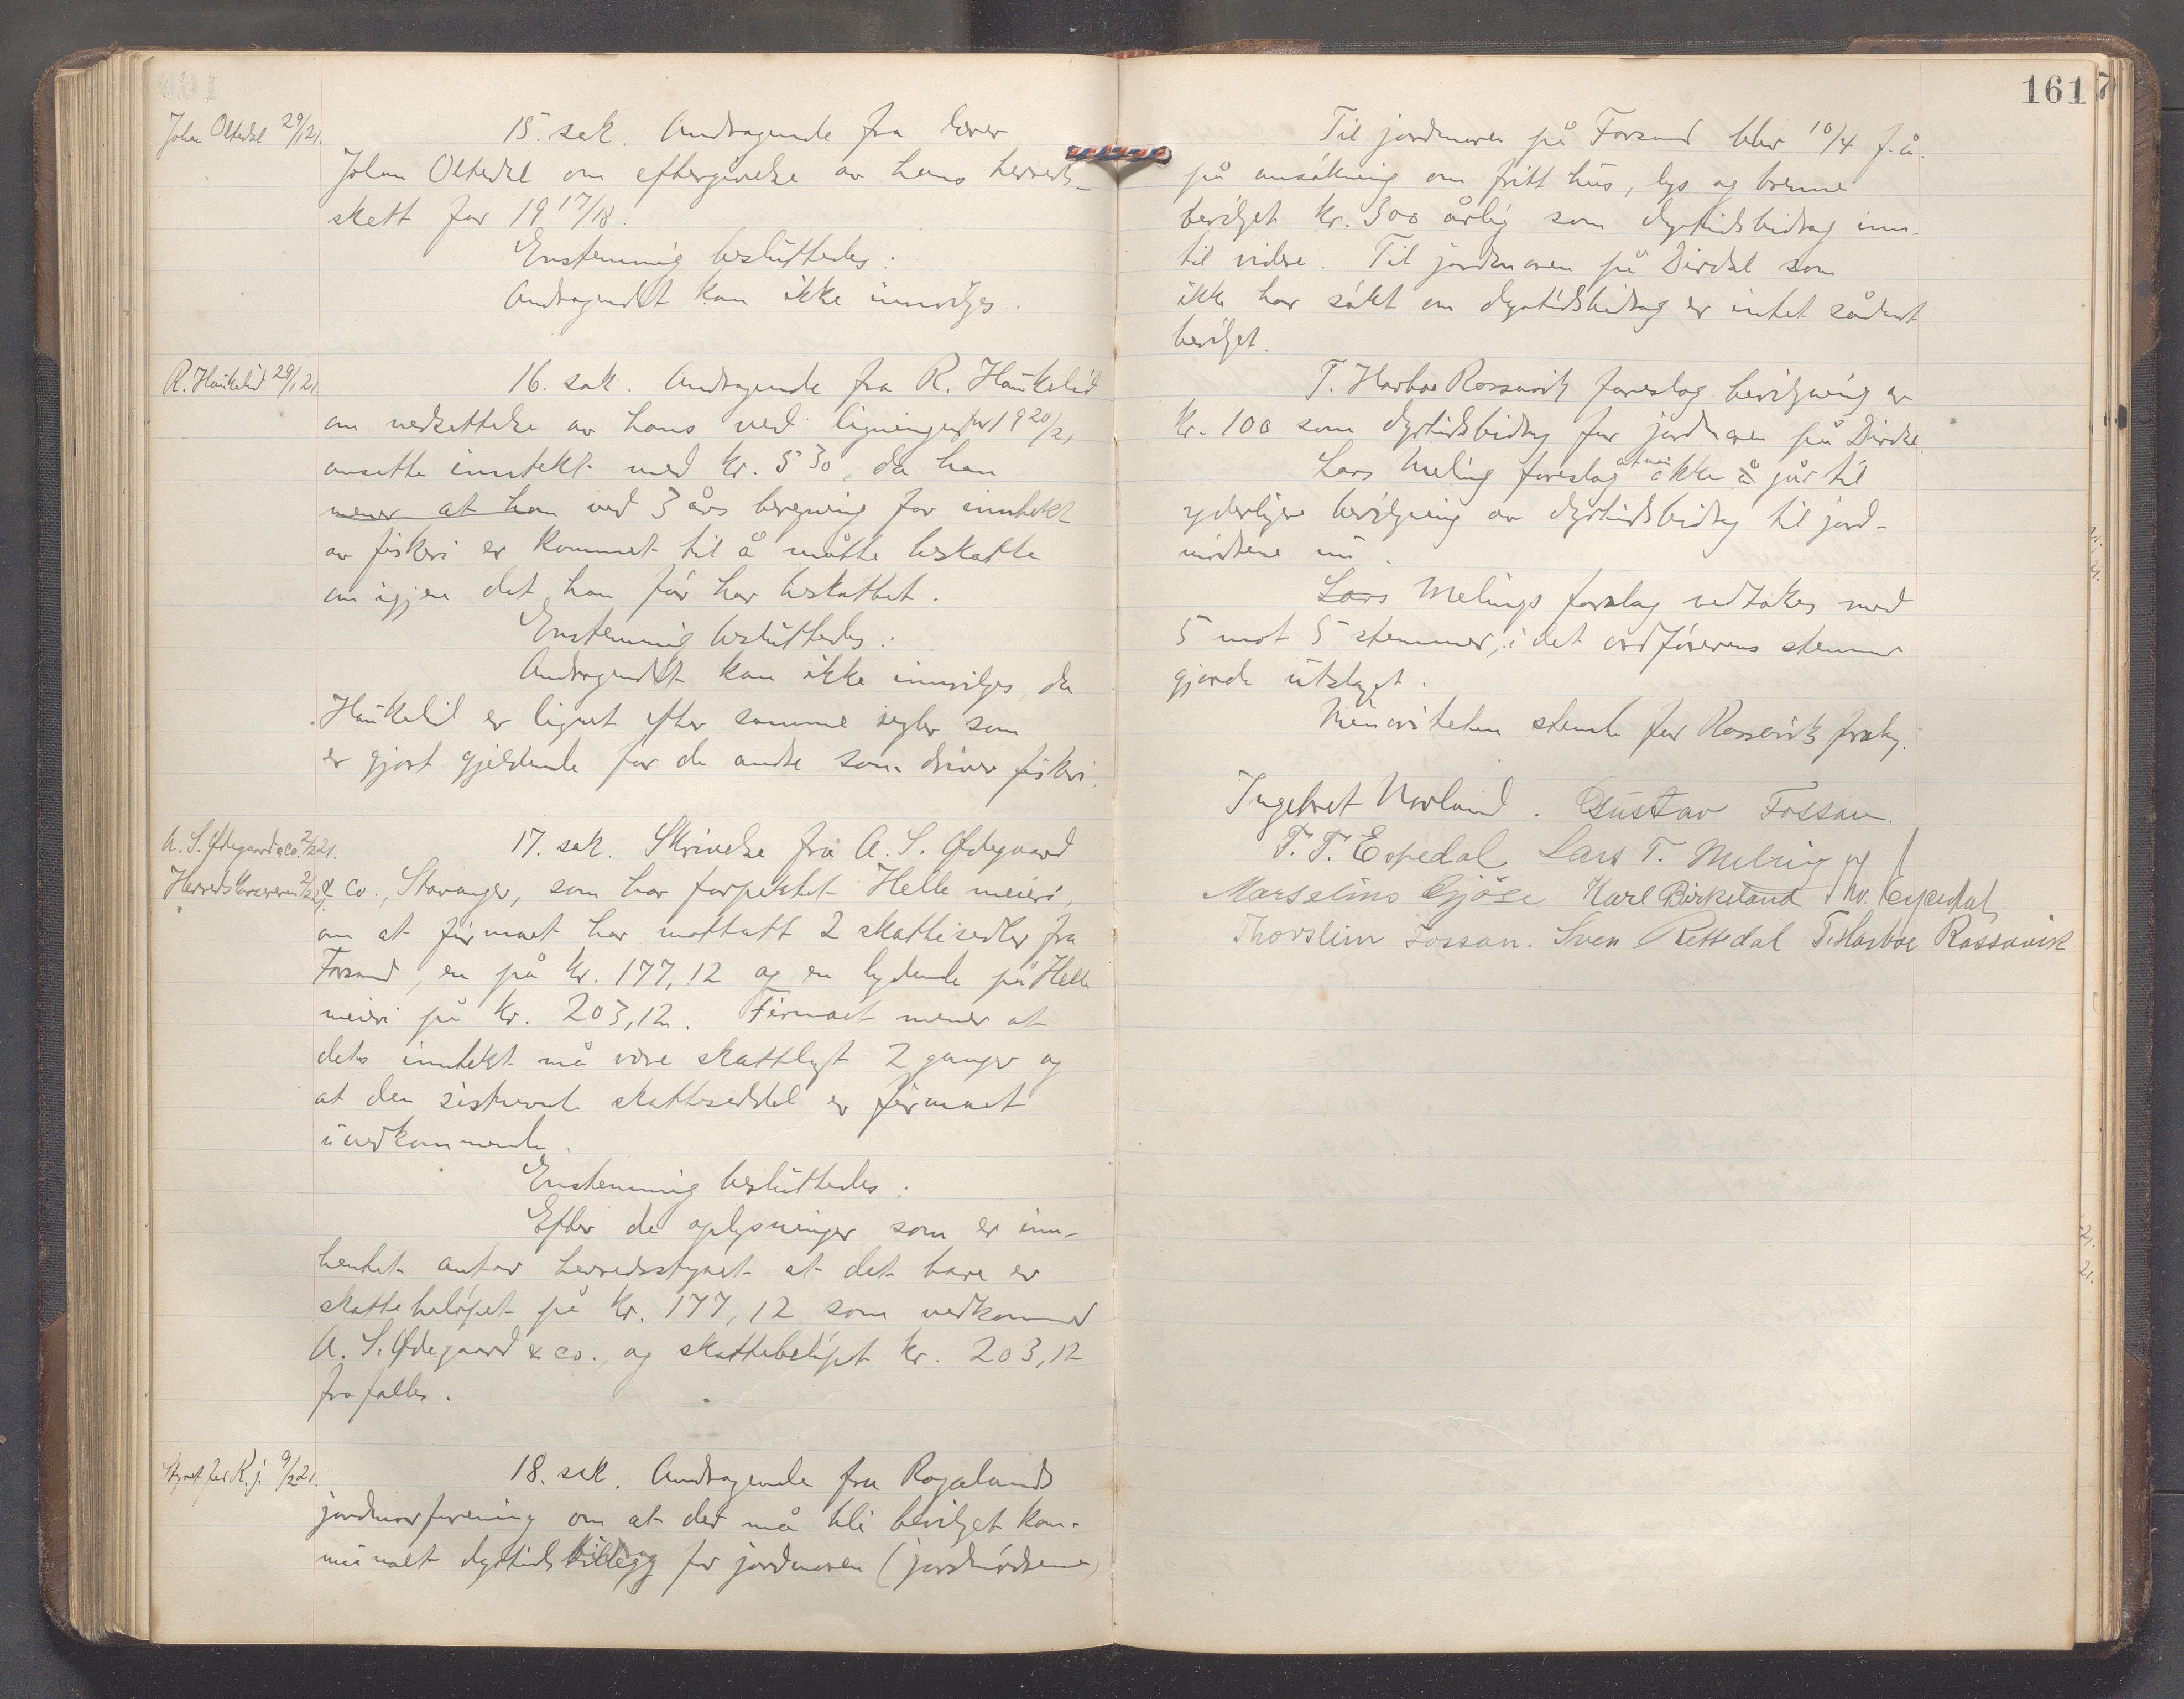 Johan Oltedal 29/1 21.
15. sak. Andragende fra lærer
Johan Oltedal om eftergivelse av hans herreds-
skatt for 19 17/18.
Enstemmig besluttedes:
Andragendet kan ikke innvilges.
R. Haukelid 29/1 21.
16. sak. Andragende fra R. Haukelid
om nedsettelse av hans ved ligningen for 19 20/21
ansatte inntekt med kr. 530, da han
mener at han ved 3 års beregning for inntekt
av fiskeri er kommet til å måtte beskatte
om igjen det han før har beskattet.
Enstemmig besluttedes:
Andragendet kan ikke innvilges, da
Haukelid er lignet efter samme regler som
er gjort gjeldende for de andre som driver fiskeri.
A. S. Ødegaard & Co. 2/2 21.
Herredskassereren 2/2 21.
17. sak. Skrivelse fra A. S. Ødegaard
& Co., Stavanger, som har forpaktet Helle meieri,
om at firmaet har mottatt 2 skattesedler fra
Forsand, en på kr. 177,12 og en lydende på Helle
meieri på kr. 203,12. Firmaet mener at
dets inntekt må være skattlagt 2 ganger og
at den sistnevnte skatteseddel er firmaet
uvedkommende.
Enstemmig besluttedes:
Efter de oplysninger som er inn-
hentet antar herredsstyret at det bare er
skattebeløpet på kr. 177,12 som vedkommer
A. S. Ødegaard & co., og skattebeløpet kr. 203,12
frafalles.
Styret for R. j. 9/2 21.
18. sak. Andragende fra Rogalands
jordmorforening om at der må bli bevilget kom-
munalt dyrtidstillegg for jordmoren (jordmødrene)
161
Til jordmoren på Forsand blev 10/4 f. å.
på ansøkning om fritt hus, lys og brenne
bevilget kr. 300 årlig som dyrtidsbidrag inn-
til videre. Til jordmoren på Dirdal som
ikke har søkt om dyrtidsbidrag er intet sådant
bevilget.
T. Harboe Rossavik foreslog bevilgning av
kr. 100 som dyrtidsbidrag for jordmoren på Dirdal.
Lars Meling foreslog at man ikke å går til
yderligere bevilgning av dyrtidsbidrag til jord-
mødrene nu.
Lars Melings forslag vedtokes med
5 mot 5 stemmer, i det ordførerens stemme
gjorde utslaget.
Minoriteten stemte for Rossaviks forslag.
Ingebret Norland. Gustav Fossan.
T. T. Espedal Lars T. Meling
Marselius Gjøse Karl Birkeland Thv. Espedal
Thorslein Fossan. Sven Rettedal T. Harboe Rossavik